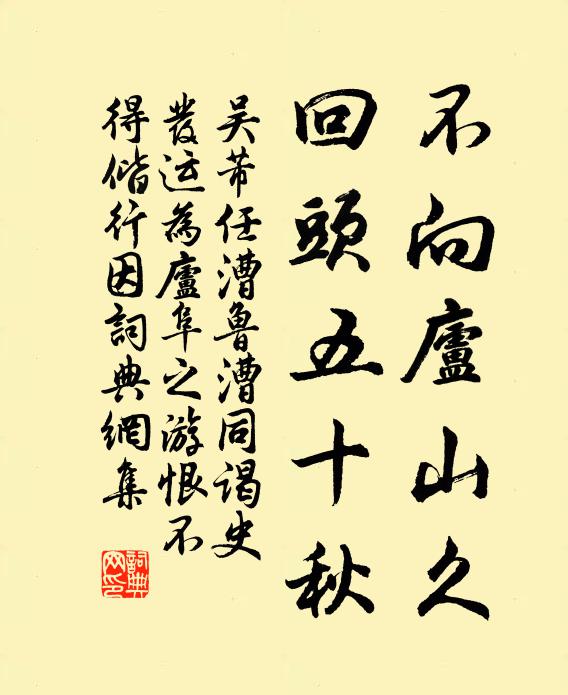 不向廬山久
回頭五十秋
吴芾任漕魯漕同謁史
發运為廬阜之游恨不
得偕行因詞典網集
詞典网印